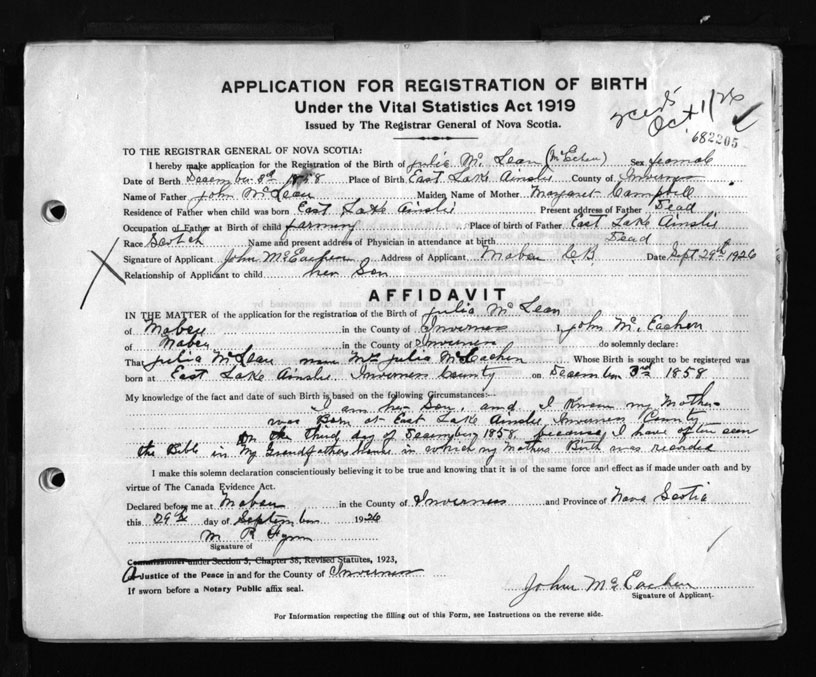 APPLICATION FOR REGISTRATION OF BIRTH
Under the Vital Statistics Act 1919
Issued by The Registrar General of Nova Scotia.
Oct 1/26
682205
TO THE REGISTRAR GENERAL OF NOVA SCOTIA:
I hereby make application for the Registration of the Birth of julia Mc Lean (McEachen) Sex feamale
Date of Birth Desember 3rd 1858 Place of Birth East Lake Ainslie County of Inverness
Name of Father John McLean Maiden Name of Mother Margaret Campbell
Residence of Father when child was born East Lake Ainslie Present address of Father Dead
Occupation of Father at Birth of child farming Place of birth of Father East Lake Ainslie
Race Scotch Name and present address of Physician in attendance at birth Dead
Signature of Applicant John McEachern Address of Applicant Mabou C.B. Date Sept 29th 1926
Relationship of Applicant to child her Son
AFFIDAVIT
IN THE MATTER of the application for the registration of the Birth of julia Mc Lean
of Mabou in the County of Inverness I, john Mc Eachen
of Mabou in the County of Inverness do solemnly declare:
That julia McLean now Mrs julia McEachen Whose Birth is sought to be registered was
born at East Lake Ainslie Inverness County on Desember 3rd 1858
My knowledge of the fact and date of such Birth is based on the following Circumstances:—
I am her Son, and I Know my Mother
was Born at East Lake Ainslie, Inverness County
on the Third day of Desember 1858, because, I have often seen
the Bible in My Grandfathers Home in which my Mothers Birth was recorded
I make this solemn declaration conscientiously believing it to be true and knowing that it is of the same force and effect as if made under oath and by
virtue of The Canada Evidence Act.
Declared before me at Mabou in the County of Inverness and Province of Nova Scotia
this 29th day of September 1926
M R
Signature of
Commissioner under Section 3, Chapter 38, Revised Statutes, 1923,
A Justice of the Peace in and for the County of Inverness
If sworn before a Notary Public affix seal.
John Mc Eachen
Signature of Applicant.
For Information respecting the filling out of this Form, see Instructions on the reverse side.